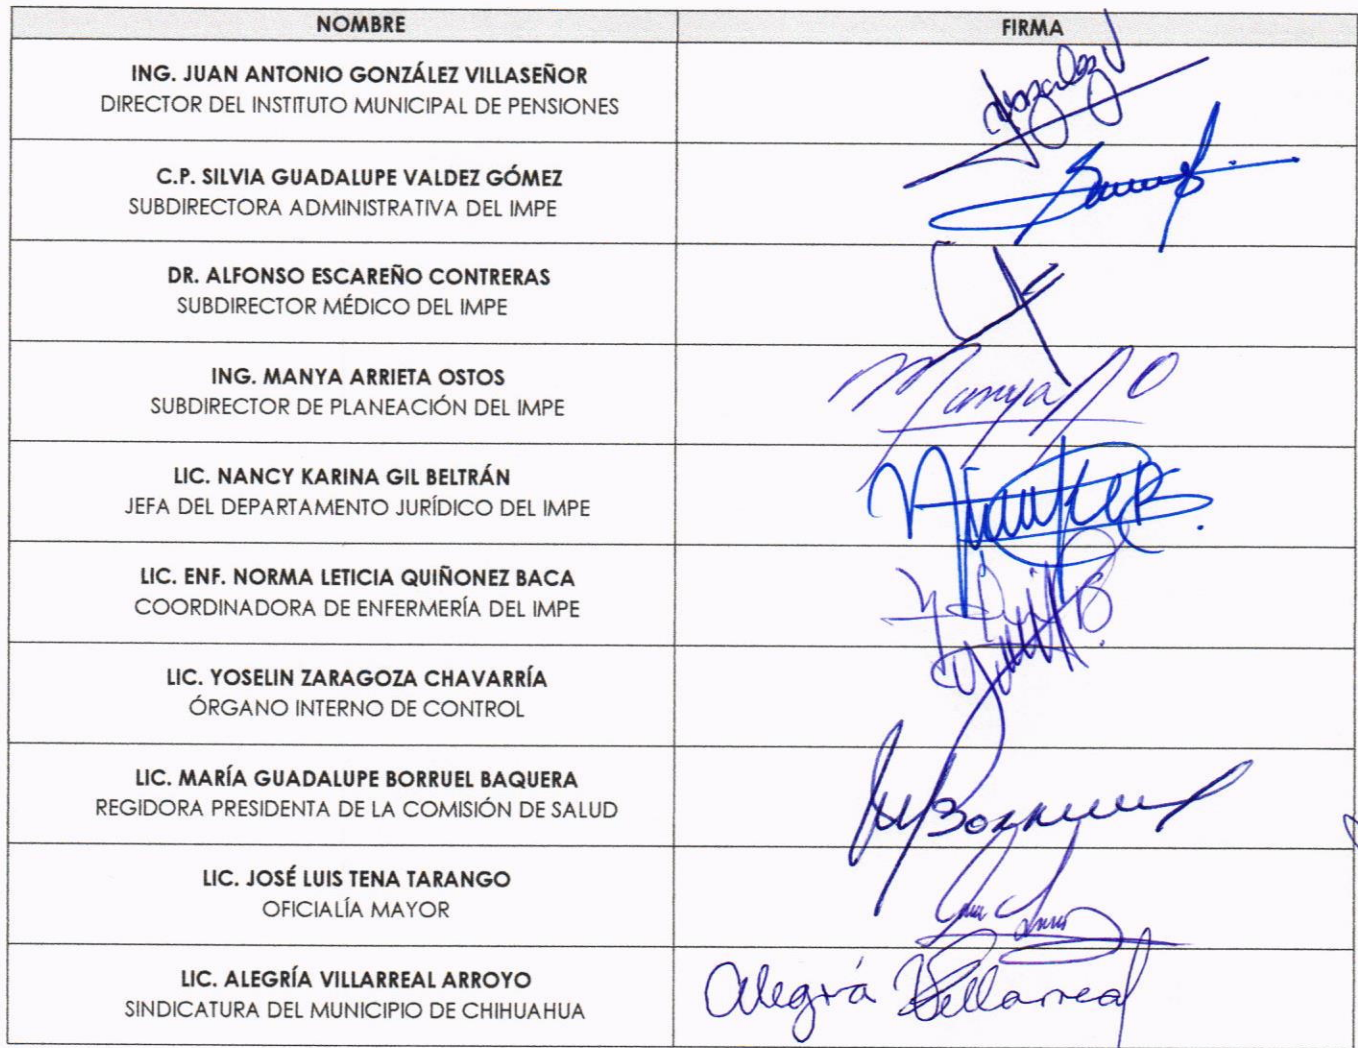 NOMBRE FIRMA
ING. JUAN ANTONIO GONZÁLEZ VILLASEÑOR
DIRECTOR DEL INSTITUTO MUNICIPAL DE PENSIONES
C.P. SILVIA GUADALUPE VALDEZ GÓMEZ
SUBDIRECTORA ADMINISTRATIVA DEL IMPE
DR. ALFONSO ESCAREÑO CONTRERAS
SUBDIRECTOR MÉDICO DEL IMPE
ING. MANYA ARRIETA OSTOS
SUBDIRECTOR DE PLANEACIÓN DEL IMPE
Manya
LIC. NANCY KARINA GIL BELTRÁN
JEFA DEL DEPARTAMENTO JURÍDICO DEL IMPE
LIC. ENF. NORMA LETICIA QUIÑONEZ BACA
COORDINADORA DE ENFERMERÍA DEL IMPE
LIC. YOSELIN ZARAGOZA CHAVARRÍA
ÓRGANO INTERNO DE CONTROL
LIC. MARÍA GUADALUPE BORRUEL BAQUERA
REGIDORA PRESIDENTA DE LA COMISIÓN DE SALUD
LIC. JOSÉ LUIS TENA TARANGO
OFICIALÍA MAYOR
LIC. ALEGRÍA VILLARREAL ARROYO
SINDICATURA DEL MUNICIPIO DE CHIHUAHUA
Alegría Villarreal